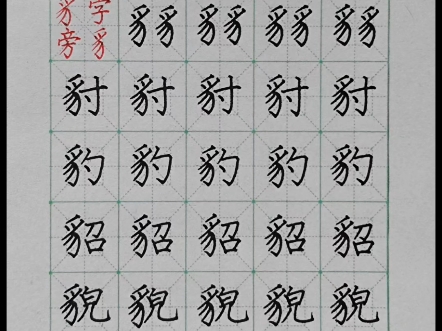 豸字 豸豸 豸豸 豸豸 豸豸
旁豸
豺 豺 豺 豺 豺
豹 豹 豹 豹 豹
貂 貂 貂 貂 貂
貌 貌 貌 貌 貌